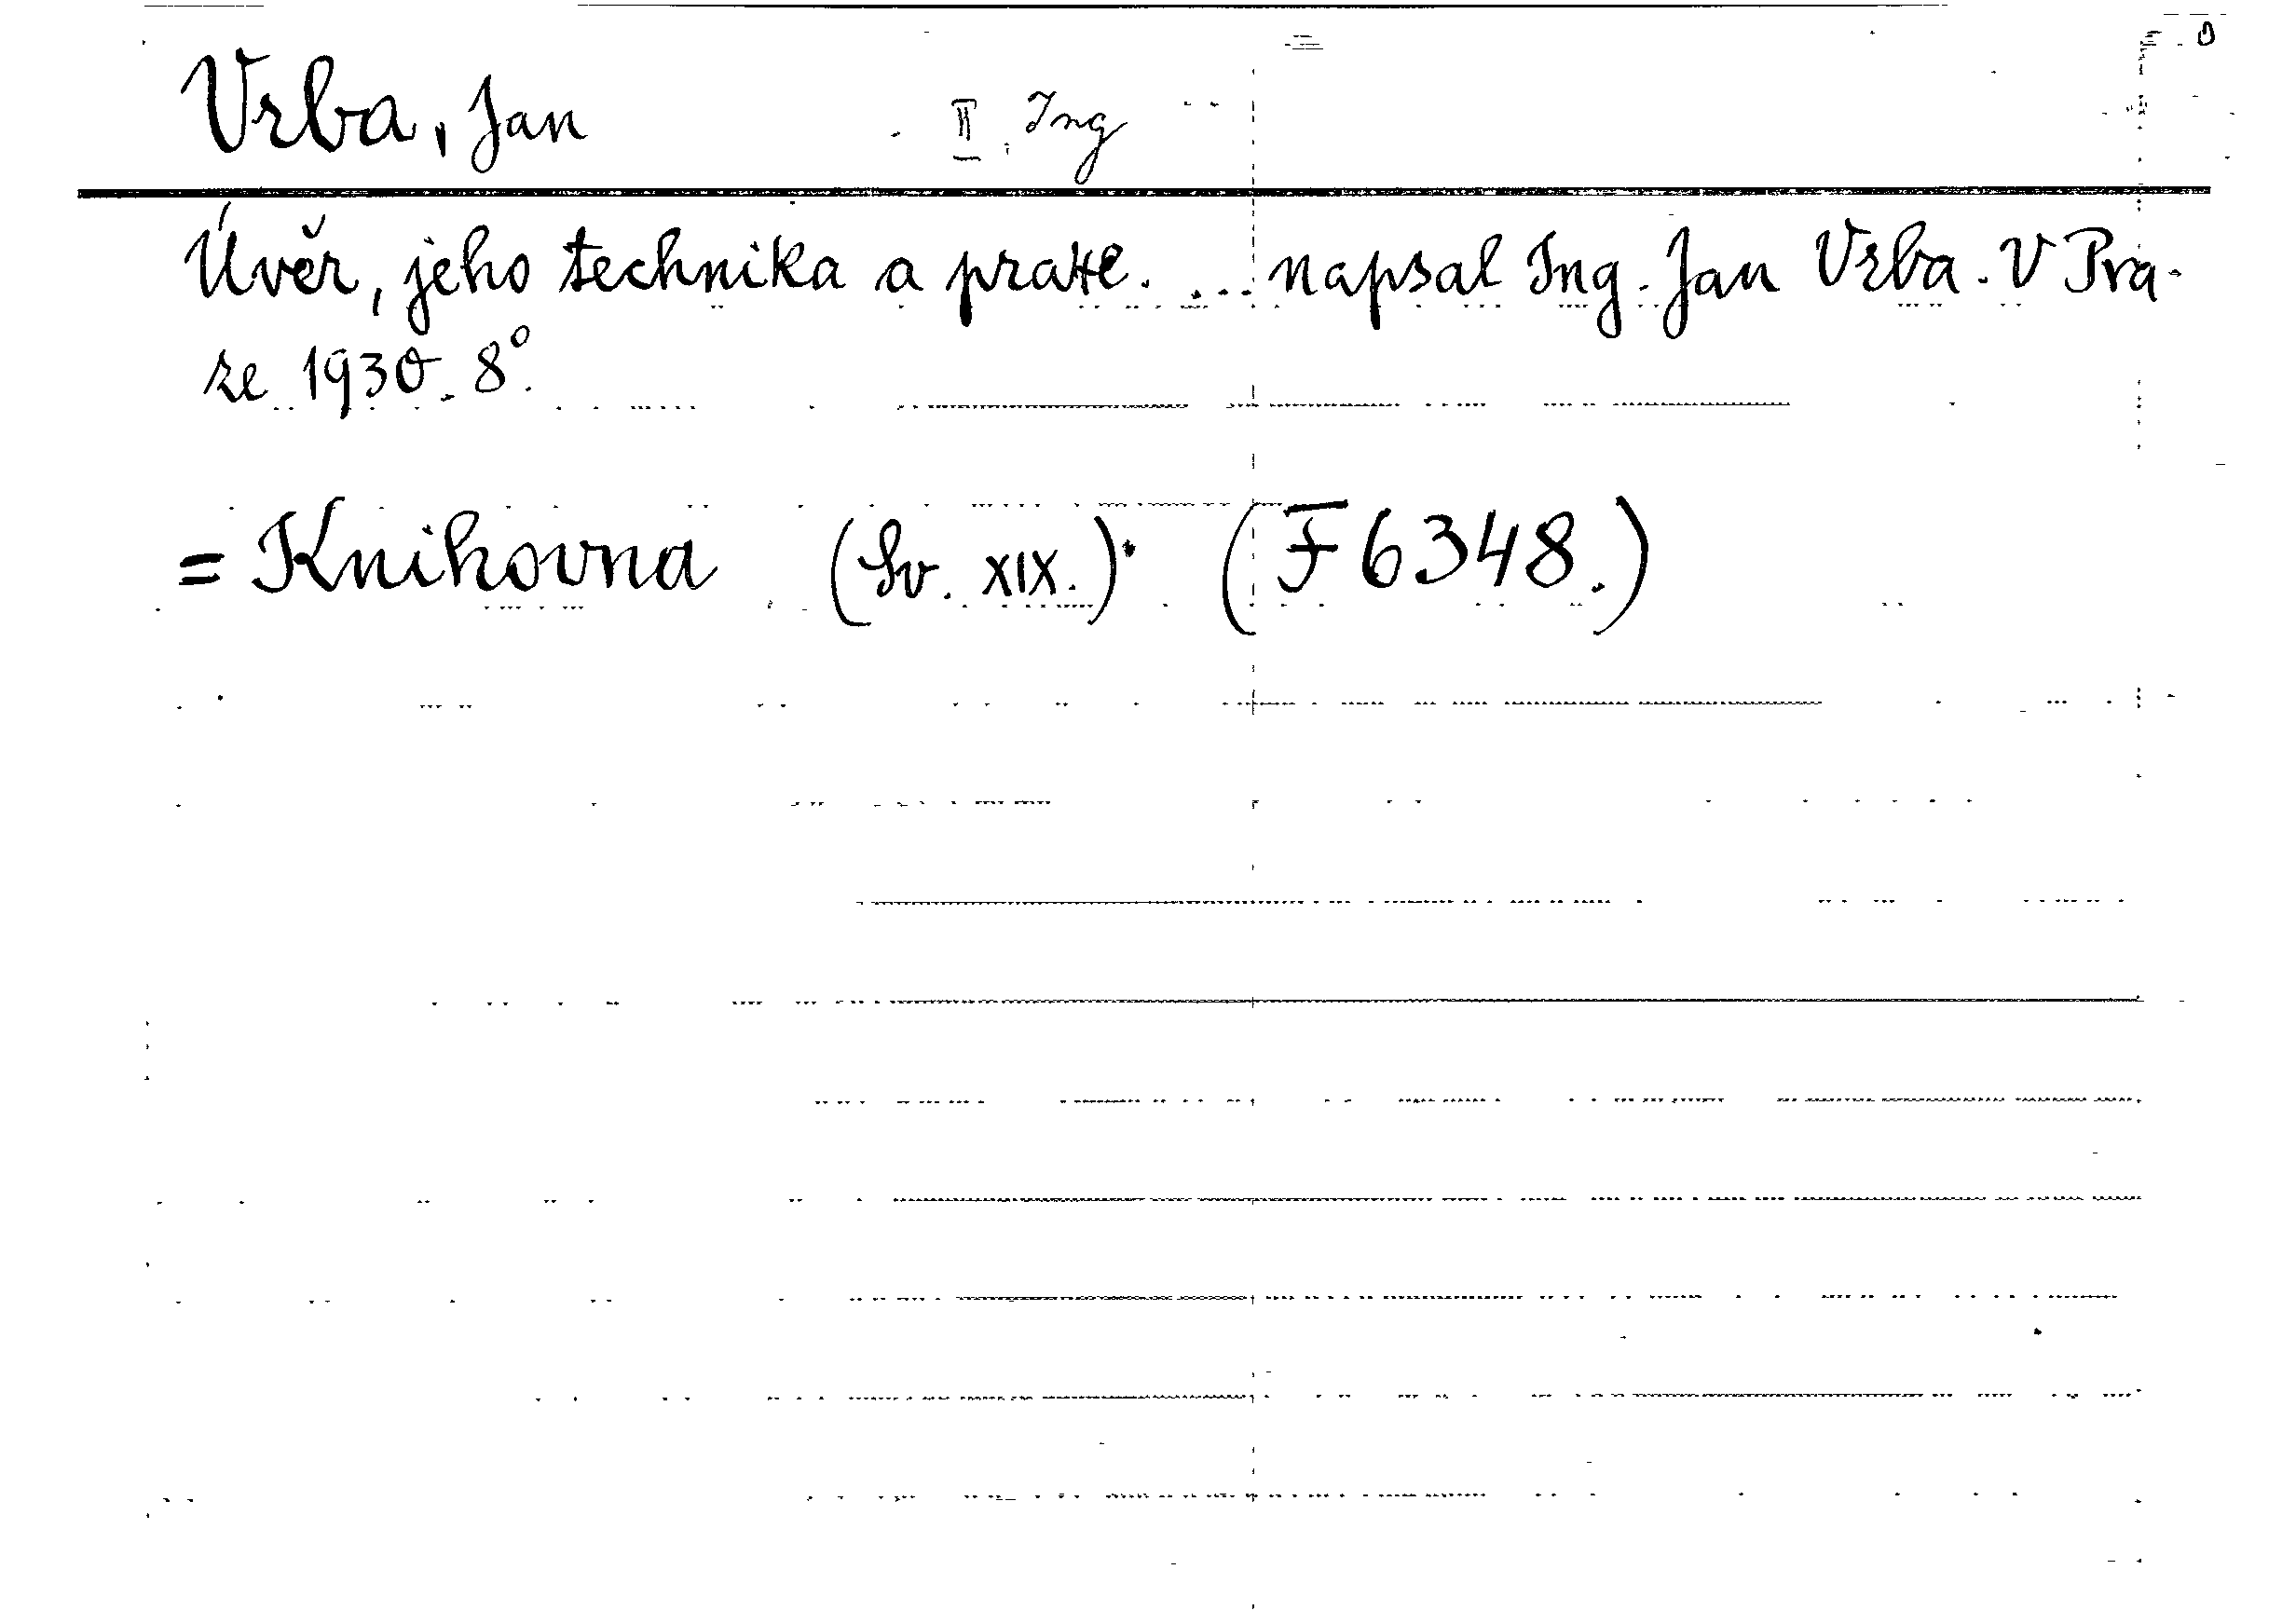 Vrba, Jan II. Ing
Úvěr, jeho technika a praxe. ... napsal Ing. Jan Vrba. V Pra-
ze 1930. 8°.
= Knihovna (Sv. XIX.) (F 6348.)